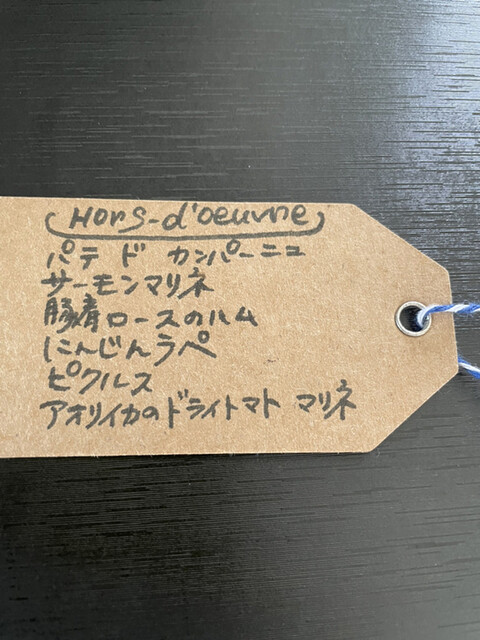 Hors-d'oeuvre
パテ ド カンパーニュ
サーモンマリネ
豚肩ロースのハム
にんじんラペ
ピクルス
アオリイカのドライトマト マリネ